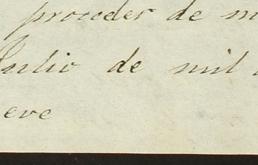 proceder de m
Julio de mil
eve